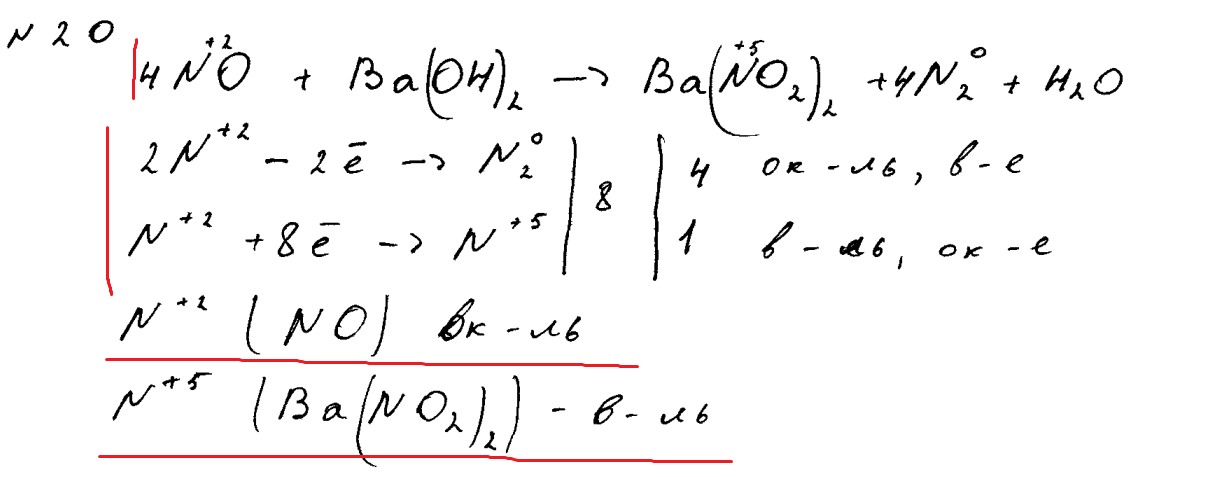 N 20
4N⁺²O + Ba(OH)₂ → Ba(N⁺⁵O₂)₂ + 4N₂⁰ + H₂O
2N⁺² - 2ē → N₂⁰ | 8 | 4 ок-ль, в-е
N⁺² + 8ē → N⁺⁵ | | 1 в-ль, ок-е
N⁺² (NO) вк-ль
N⁺⁵ (Ba(NO₂)₂) - в-ль